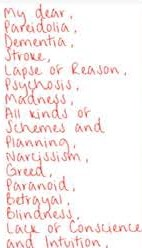 My dear,
Pareidolia,
Dementia,
Stroke,
Lapse of Reason,
Psychosis,
Madness,
All kinds of
Schemes and
Planning,
Narcissism,
Greed,
Paranoid,
Betrayal,
Blindness,
Lack of Conscience
and Intuition,